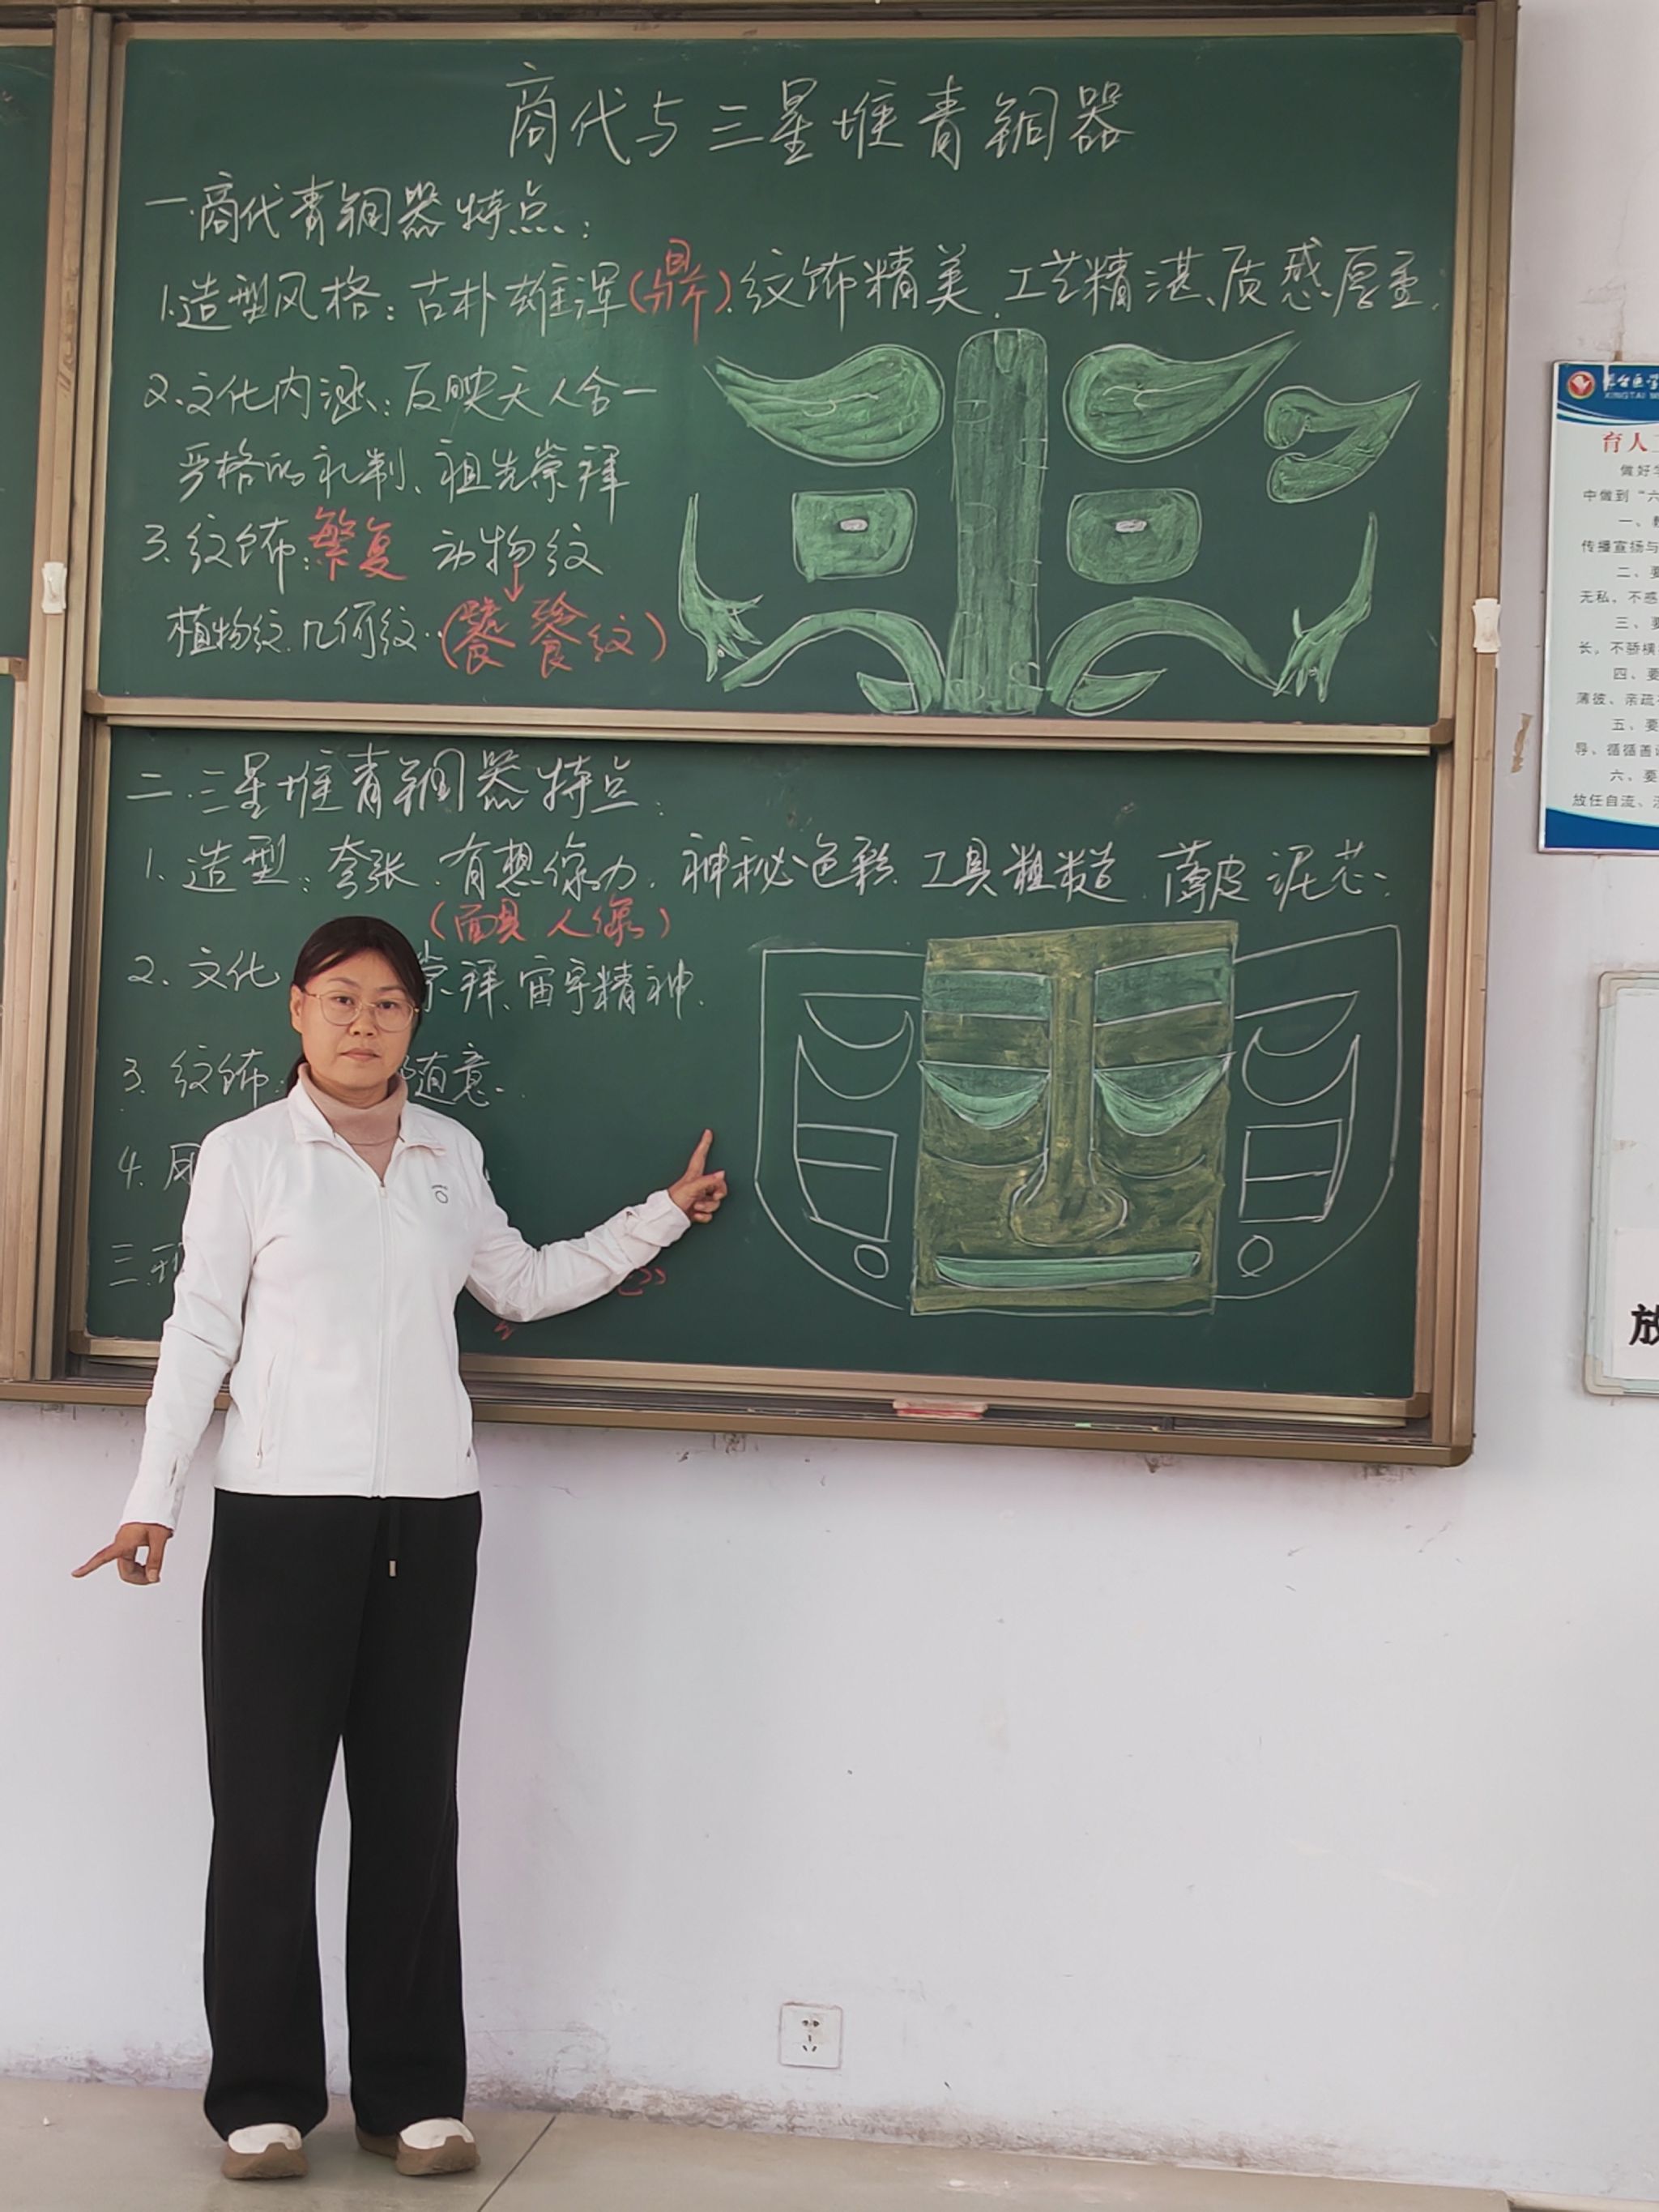 商代与三星堆青铜器
一.商代青铜器特点:
1.造型风格:古朴雄浑(鼎).纹饰精美.工艺精湛、质感厚重.
2.文化内涵:反映天人合一
严格的礼制、祖先崇拜
3.纹饰:繁复 动物纹
植物纹.几何纹..(饕餮纹)
二.三星堆青铜器特点:
1.造型:夸张.有想像力.神秘色彩.工具粗糙.薄皮泥芯.
(面具 人像)
2.文化 崇拜、宙宇精神.
3.纹饰: 随意.
4.
三.
XINGTAI
育人
中做到"六
一、
传播宣扬与
二、要
无私,不惑
三、要
长,不骄横
四、要
薄彼、亲疏
五、要
导、循循善
六、要
放任自流、
放